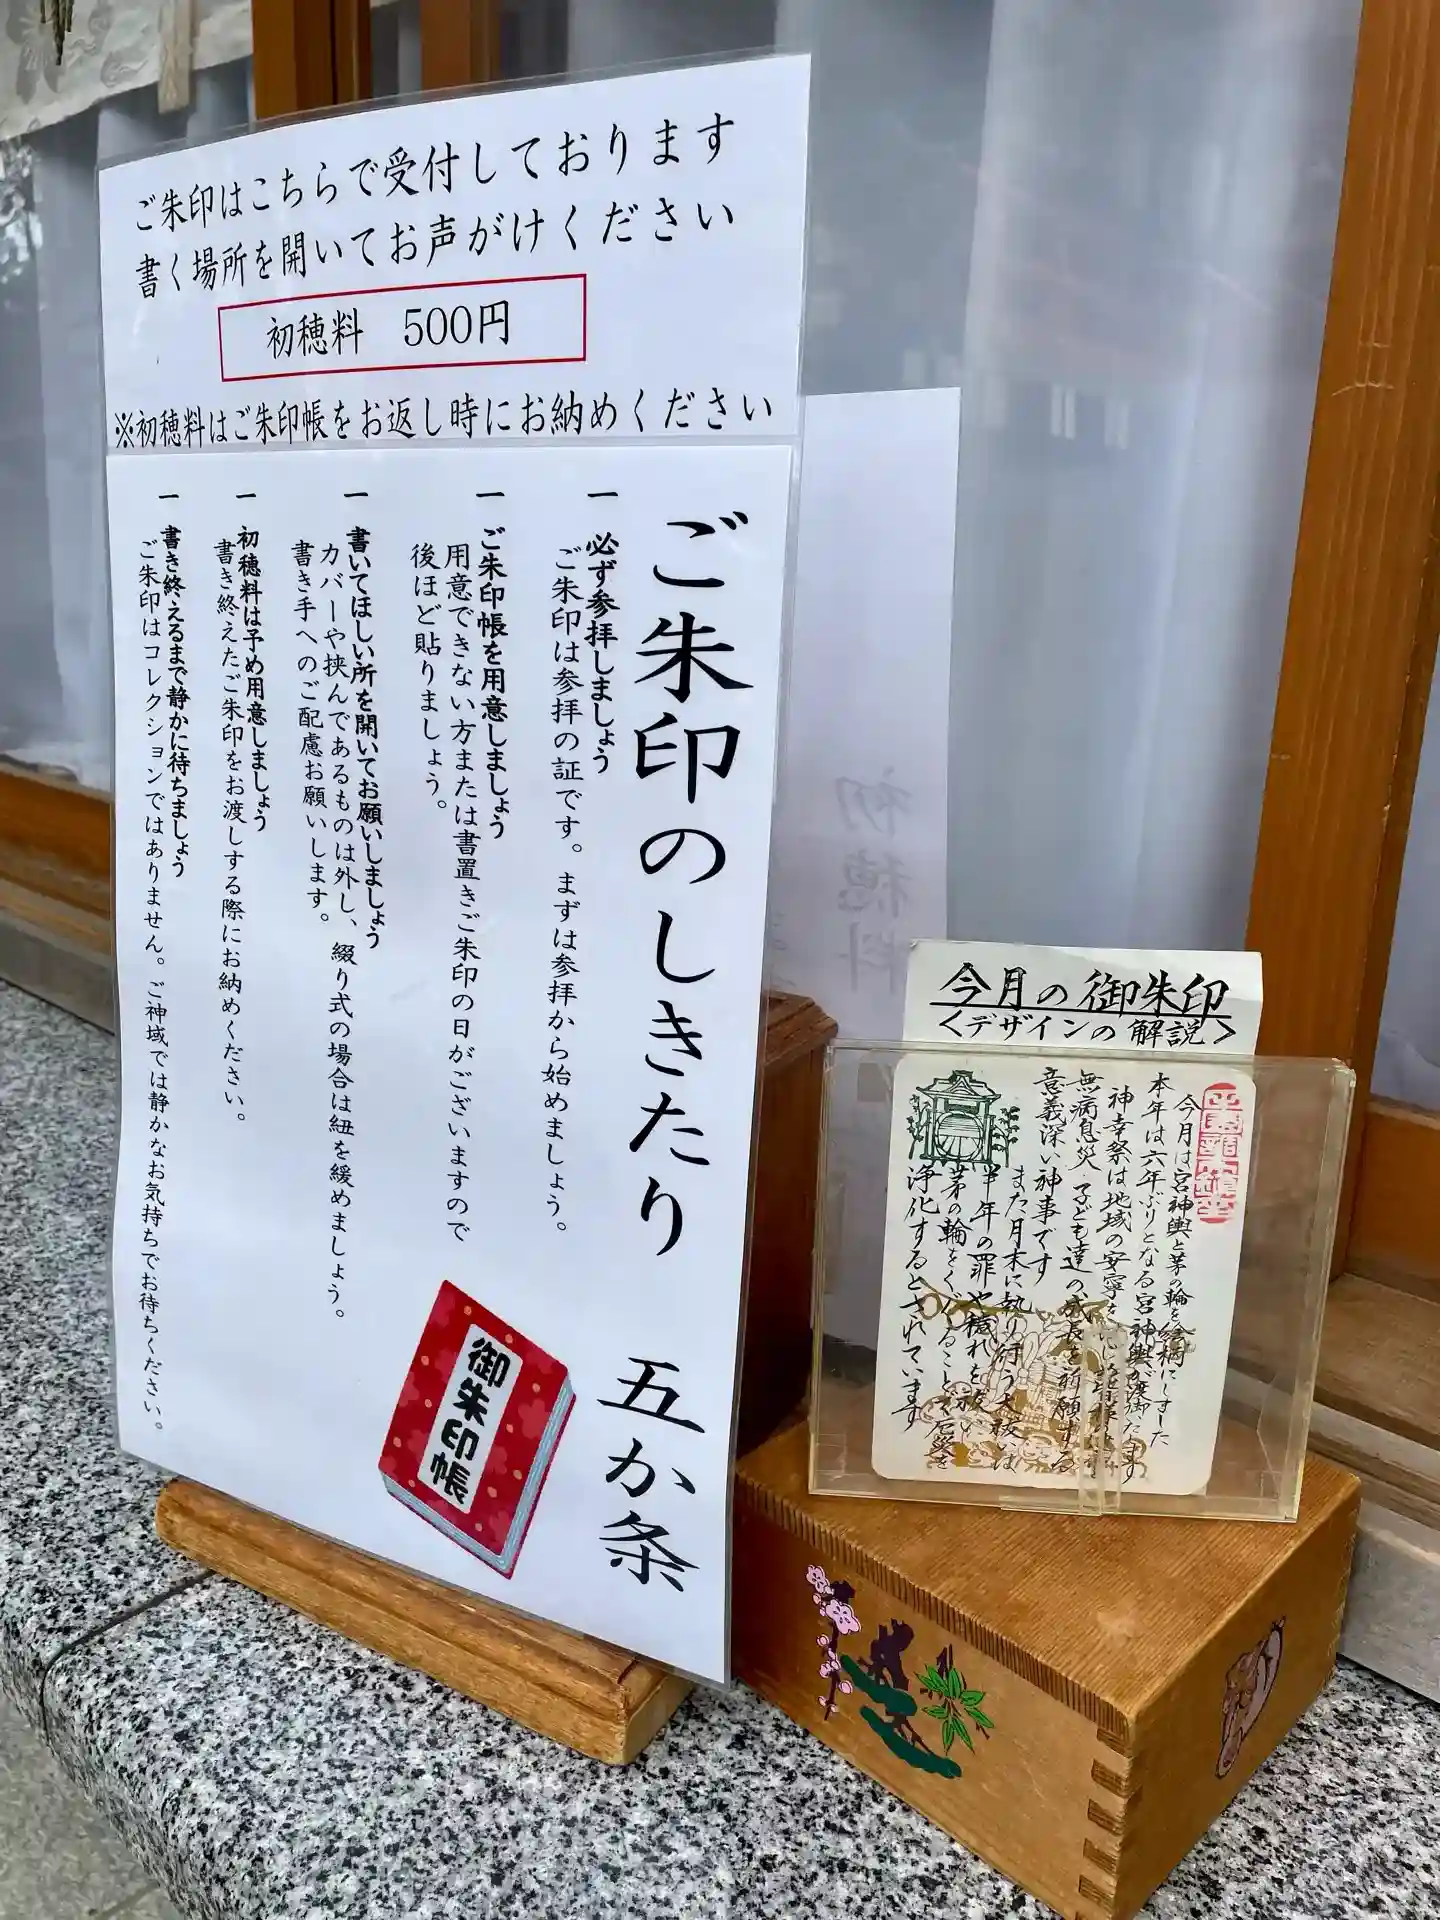 ご朱印はこちらで受付しております
書く場所を開いてお声がけください
初穂料 500円
※初穂料はご朱印帳をお返し時にお納めください
ご朱印のしきたり 五か条
一 必ず参拝しましょう
ご朱印は参拝の証です。まずは参拝から始めましょう。
一 ご朱印帳を用意しましょう
用意できない方または書置きご朱印の日がございますので
後ほど貼りましょう。
一 書いてほしい所を開いてお願いしましょう
カバーや挟んであるものは外し、綴り式の場合は紐を緩めましょう。
書き手へのご配慮お願いします。
一 初穂料は予め用意しましょう
書き終えたご朱印をお渡しする際にお納めください。
一 書き終えるまで静かに待ちましょう
ご朱印はコレクションではありません。ご神域では静かなお気持ちでお待ちください。
御朱印帳
初穂料
今月の御朱印
<デザインの解説>
今月は宮神輿と茅の輪を絵柄にしました
本年は六年ぶりとなる宮神輿が渡御いたします
神幸祭は地域の安寧を
無病息災 子ども達の成長を祈願する
意義深い神事です
また月末に執り行う大祓いは
半年の罪や穢れを祓い
茅の輪をくぐることで厄災を
浄化するとされています